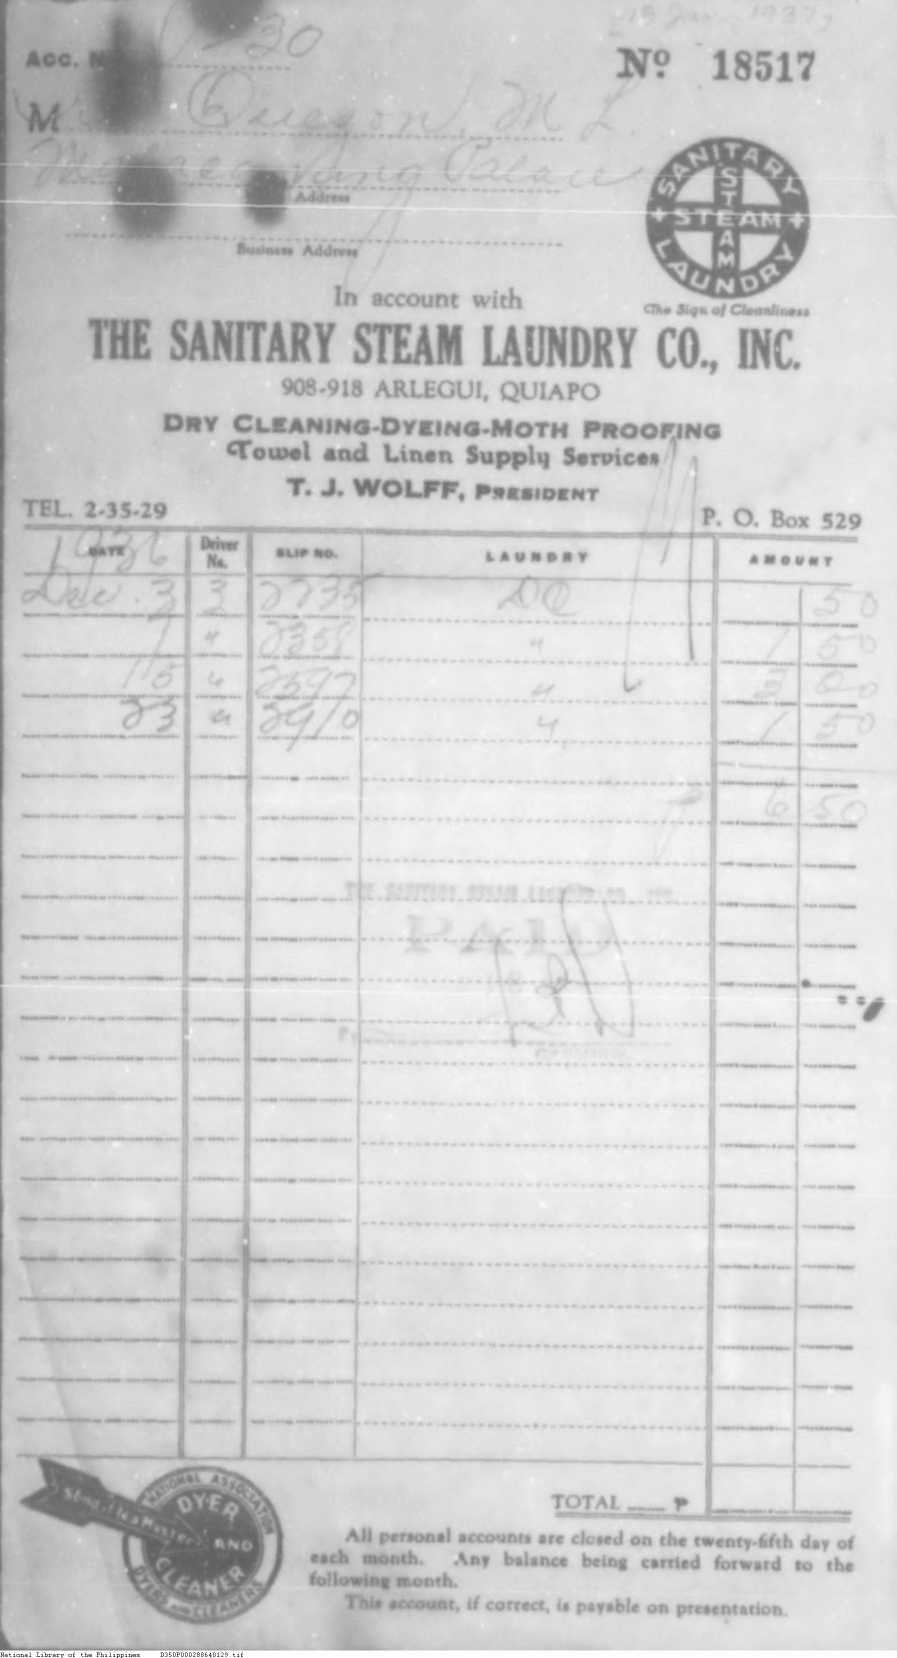 (15 Jan., 1937)
Acc. N 30
Nº 18517
M Quezon, M. L.
Malacañang Palace
Address
Business Address
SANITARY STEAM LAUNDRY
STEAM
The Sign of Cleanliness
In account with
THE SANITARY STEAM LAUNDRY CO., INC.
908-918 ARLEGUI, QUIAPO
DRY CLEANING-DYEING-MOTH PROOFING
Towel and Linen Supply Services
T. J. WOLFF, PRESIDENT
TEL. 2-35-29 P. O. Box 529
1936
DATE Driver No. SLIP NO. LAUNDRY AMOUNT
Dec. 3 3 2235 DC 50
7 " 2358 " 1 50
15 " 2597 " 3 00
23 " 2910 " 1 50
₱ 6 50
THE SANITARY STEAM LAUNDRY CO., INC.
PAID
TOTAL ₱
NATIONAL ASSOCIATION
DYER AND CLEANER
DYERS AND CLEANERS
All personal accounts are closed on the twenty-fifth day of
each month. Any balance being carried forward to the
following month.
This account, if correct, is payable on presentation.
National Library of the Philippines D350P000288640129.tif